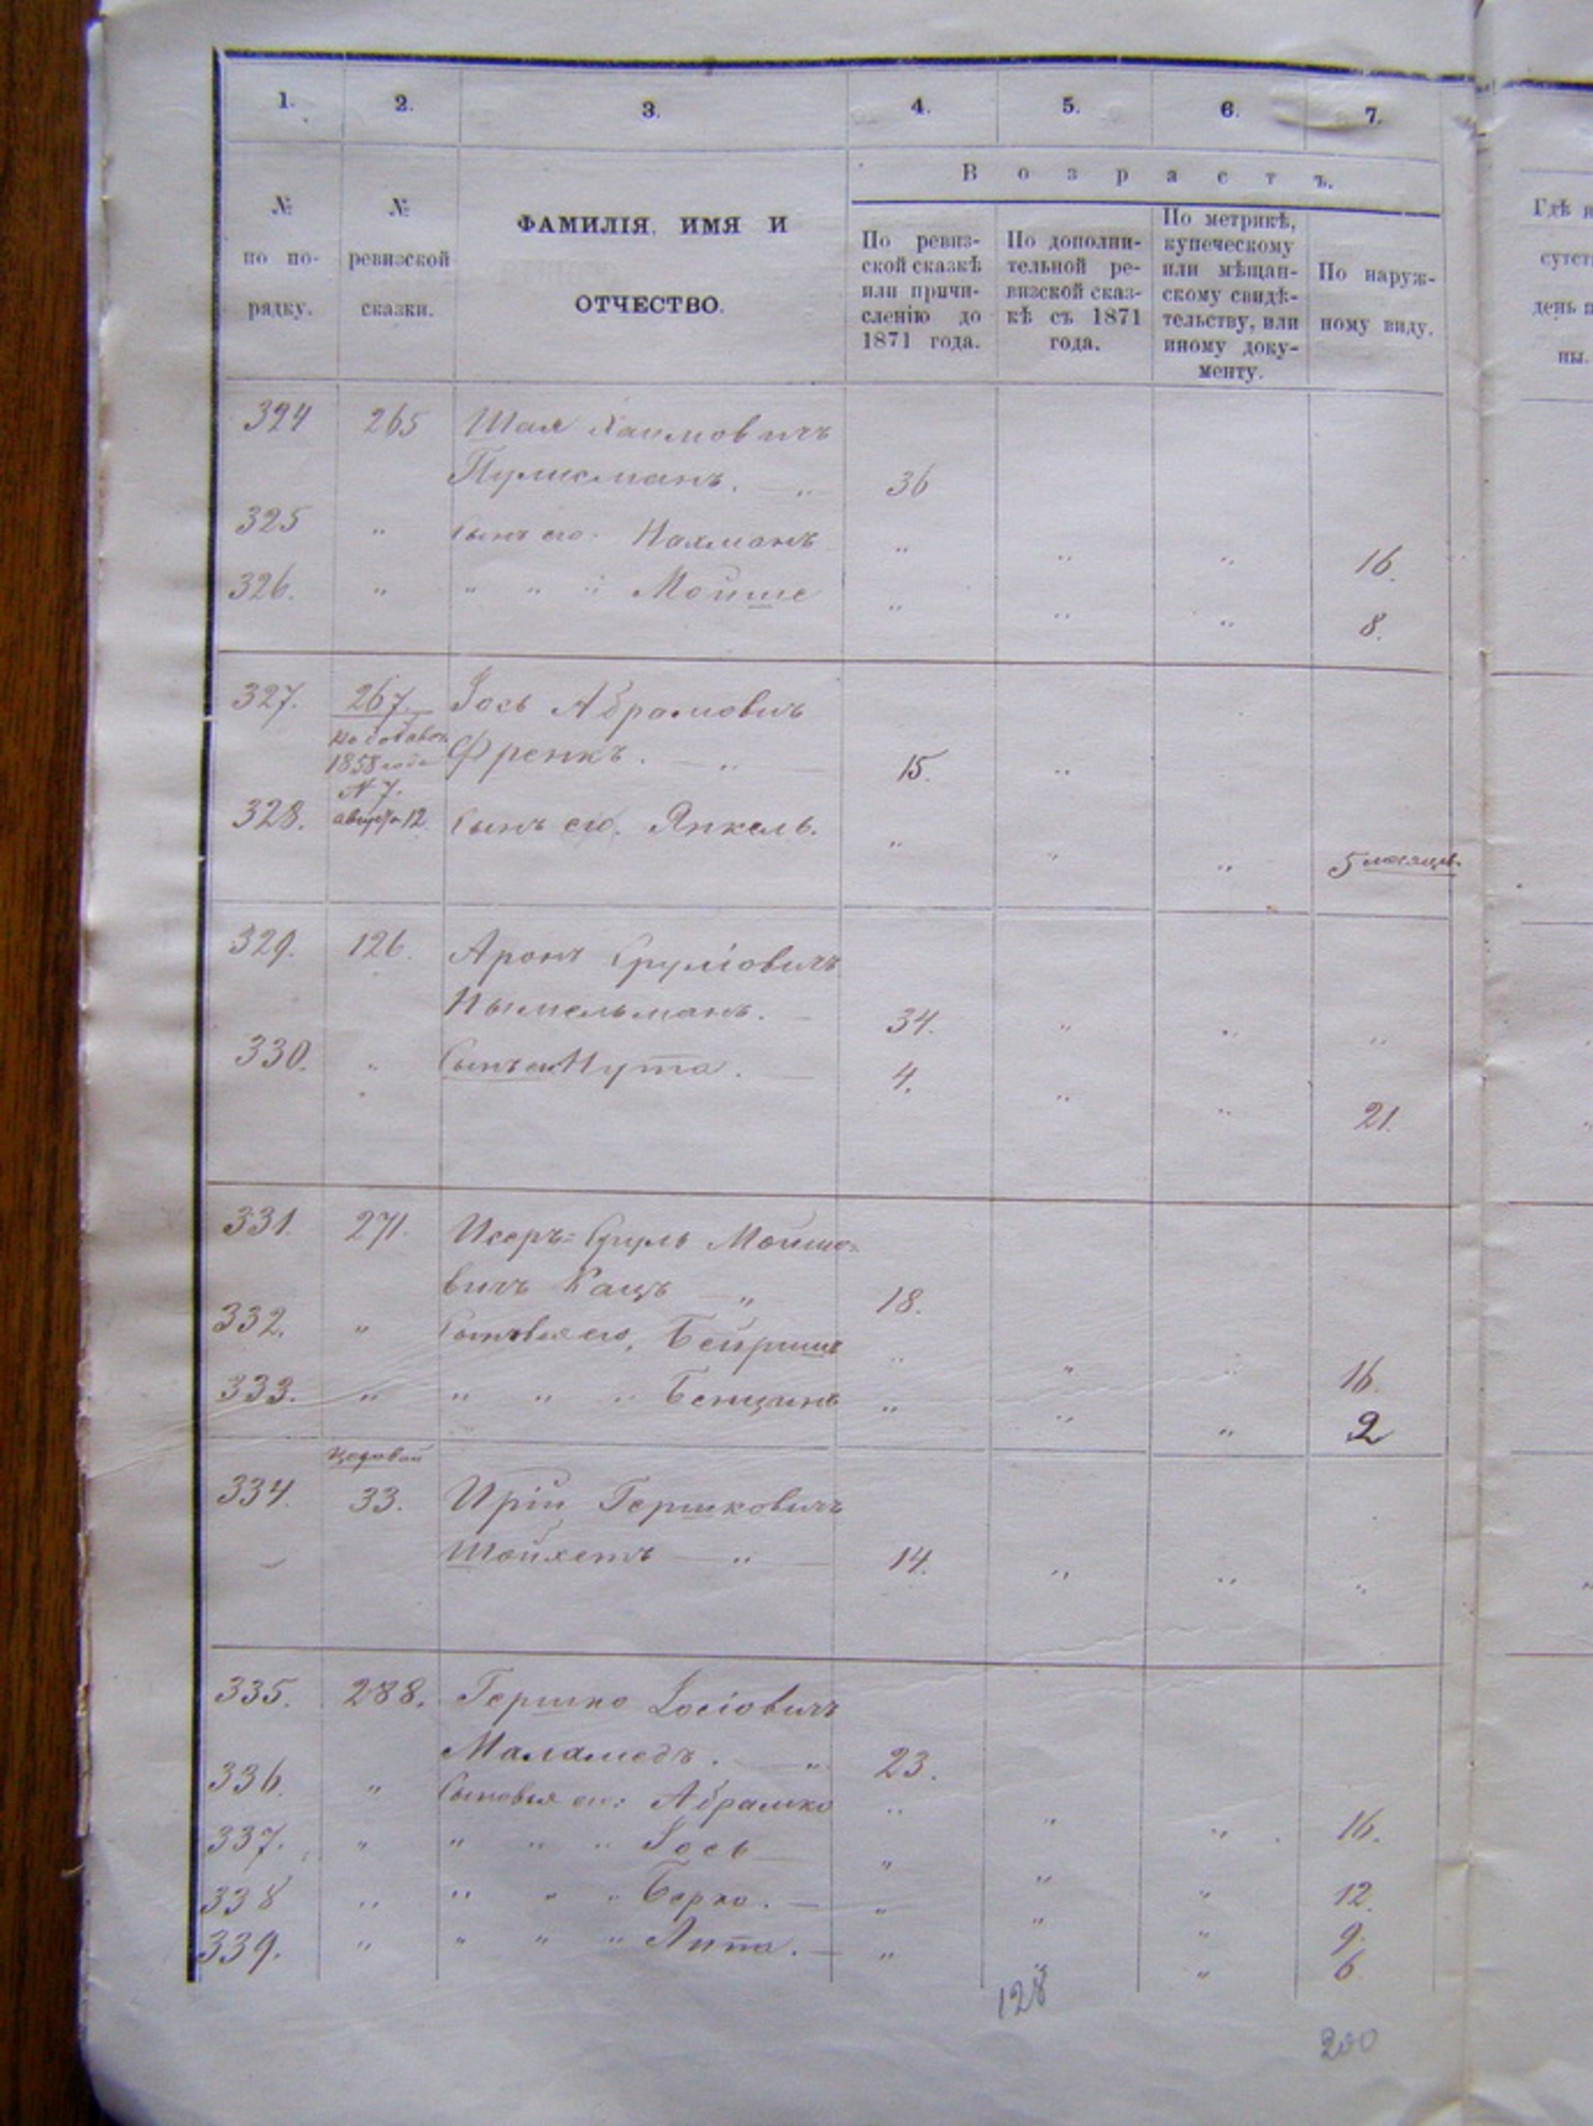 1. 2. 3. 4. 5. 6. 7.
В о з р а с т ъ.
№ по по- рядку.
№ ревизской сказки.
ФАМИЛІЯ, ИМЯ И
ОТЧЕСТВО.
По ревиз-
ской сказкѣ
или причи-
сленію до
1871 года.
По дополни-
тельной ре-
визской сказ-
кѣ съ 1871
года.
По метрикѣ,
купеческому
или мѣщан-
скому свидѣ-
тельству, или
иному доку-
менту.
По наруж-
ному виду.
324 265 Шая Хаимовичъ
Пулисманъ. — „ 36
325 „ Сынъ его: Нахманъ „ „ „ 16.
326. „ „ „ „ Мойше „ „ „ 8.
327. 267. Іось Абрамовичъ
1858 года Френкъ. — „ 15. „
№ 7.
328. августа 12. Сынъ его. Янкель. „ „ „ 5 месяцев.
329. 126. Аронъ Сруліовичъ
Нымельманъ. — 34. „ „ „
330. „ Сынъ его Нута. — 4. „ „ 21.
331. 271. Исеръ=Сруль Мойшо=
вичъ Кацъ — „ 18.
332. „ Сыновья его, Бейришъ „ „ „ 16.
333. „ „ „ „ Бенцинъ „ „ „ 2
334. 33. Ирій Гершковичъ
— Шойхетъ — „ — 14. „ „ „
335. 288. Гершко Іосіовичъ
Маламедъ. — „ 23.
336. „ Сыновья его: Абрамко „ „ „ 16.
337. „ „ „ „ Іось „ „ „ 12.
338 „ „ „ „ Берко. — „ „ „ 9.
339. „ „ „ „ Липа. — „ „ „ 6
128
200
Гдѣ н
сутст
день п
ны.